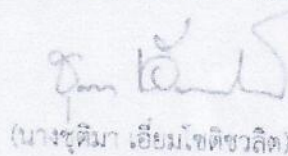 (นางชุติมา เอี่ยมโชติชวลิต)